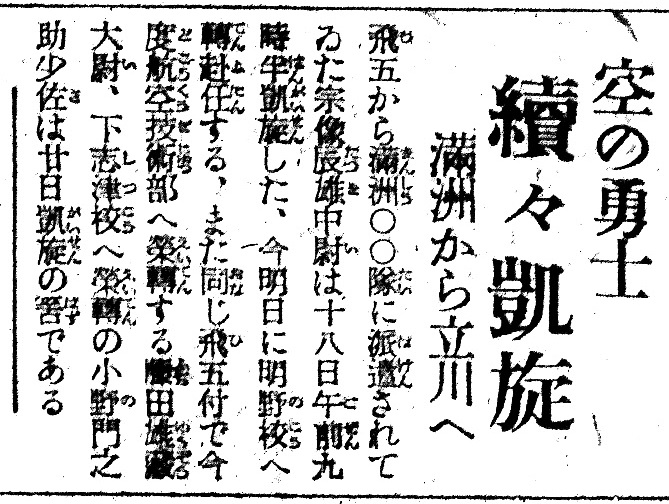 空の勇士
續々凱旋
滿洲から立川へ
飛五から滿洲〇〇隊に派遣されて
ゐた宗像辰雄中尉は十八日午前九
時半凱旋した、今明日に明野校へ
轉赴任する、また同じ飛五付で今
度航空技術部へ榮轉する田雄藏
大尉、下志津校へ榮轉の小野門之
助少佐は廿日凱旋の筈である